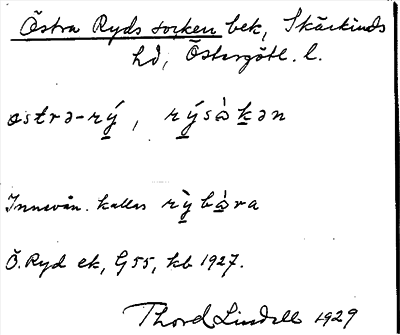 Östra Ryds socken bek, Skärkinds
hd, Östergötl. l.
ostrə-rý, rýsòkən
Innevån. kallas rỳbára
Ö. Ryd ek, G 55, kb 1927.
Thord Lindell 1929